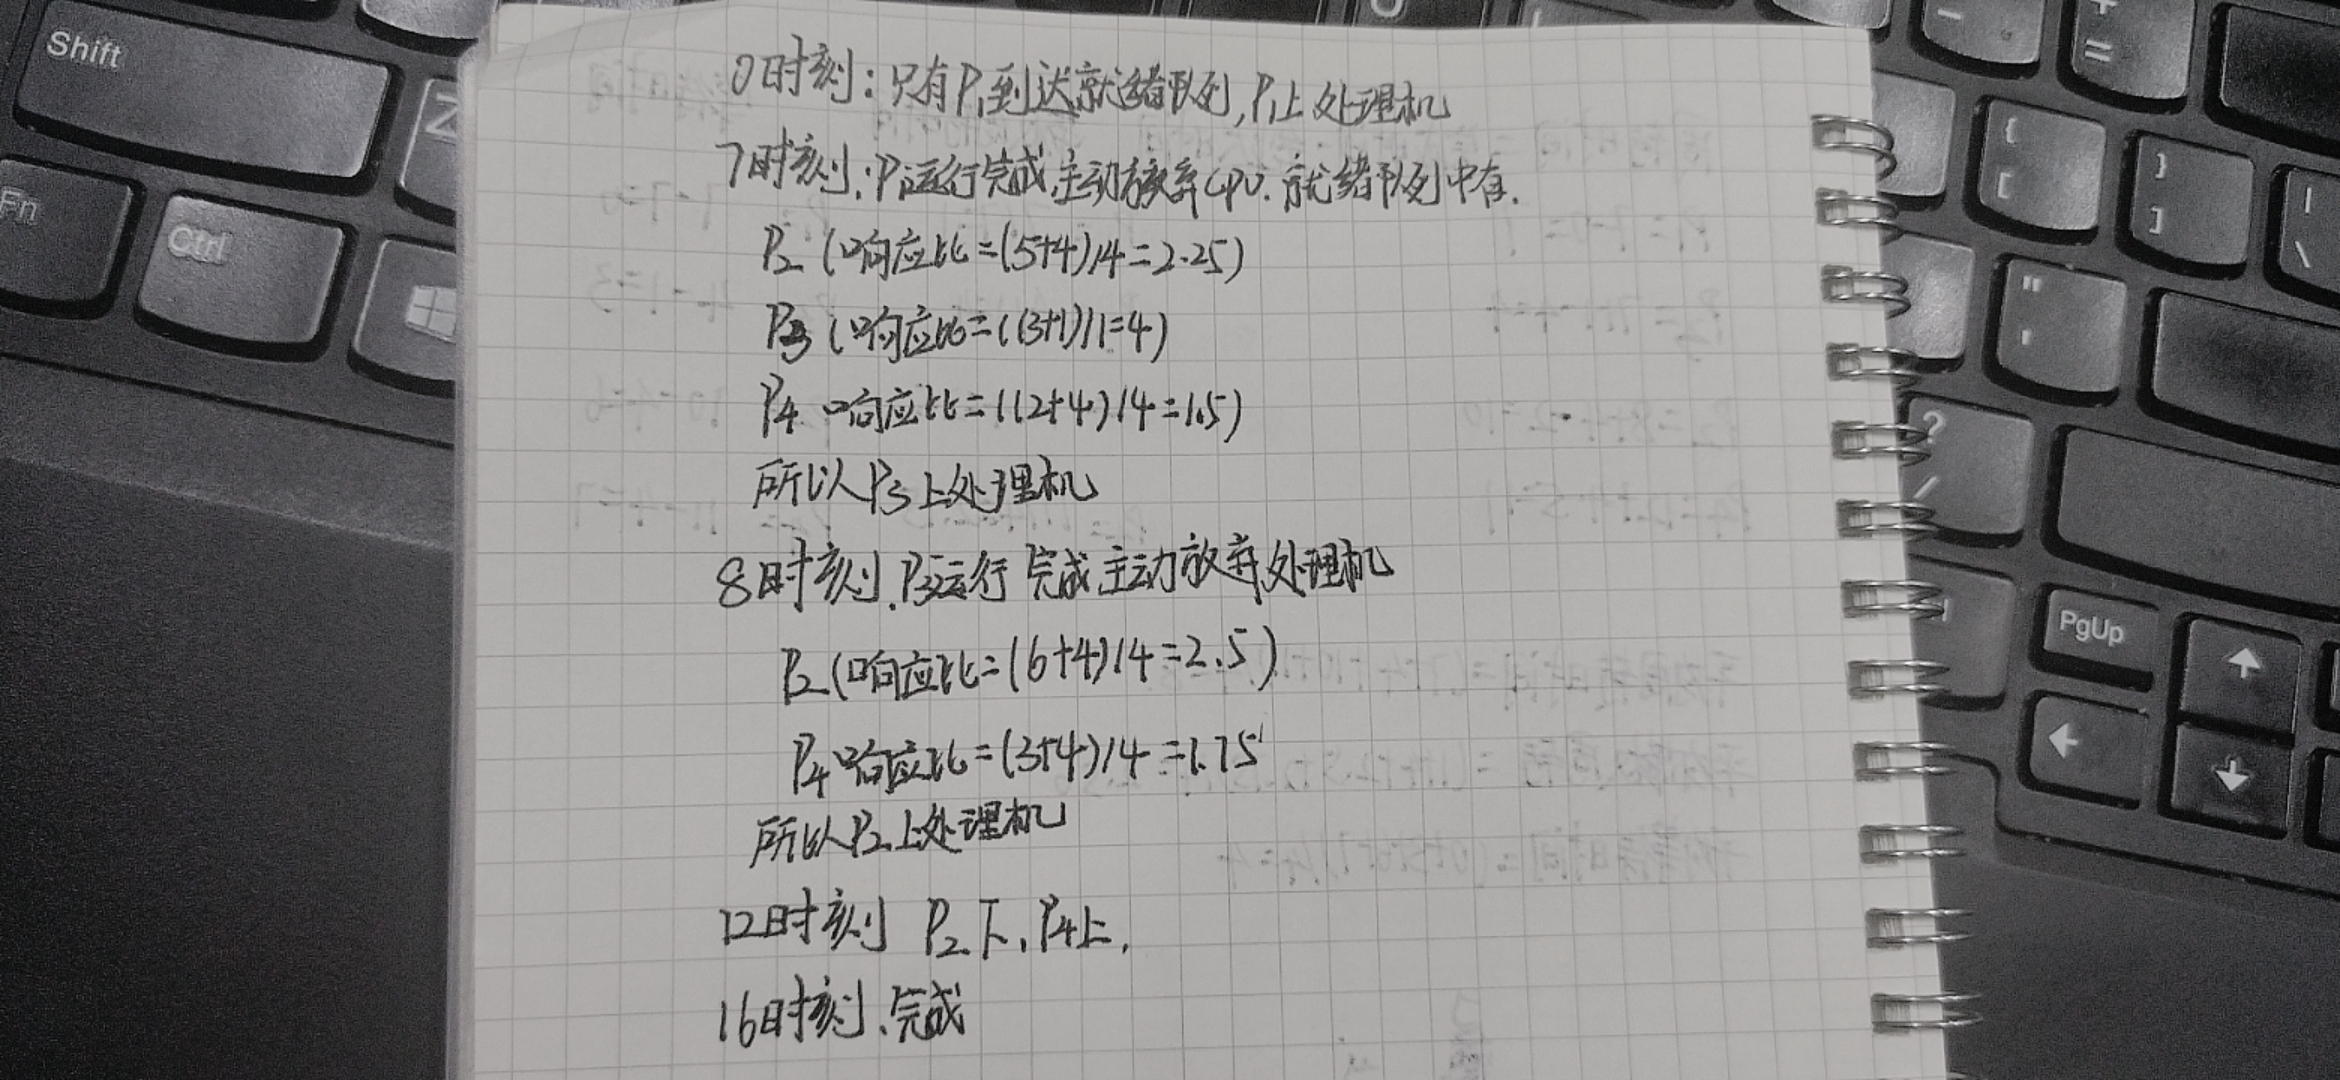 0时刻：只有P1到达就绪队列，P1上处理机
7时刻：P1运行完成，主动放弃CPU. 就绪队列中有.
P2 (响应比=(5+4)/4=2.25)
P3 (响应比=((3+1)/1=4)
P4 响应比=((2+4)/4=1.5)
所以P3上处理机
8时刻. P3运行完成主动放弃处理机
P2(响应比=(6+4)/4=2.5)
P4响应比=(3+4)/4=1.75
所以P2上处理机
12时刻 P2下, P4上,
16时刻、完成
Shift
Z
Fn
Ctrl
PgUp